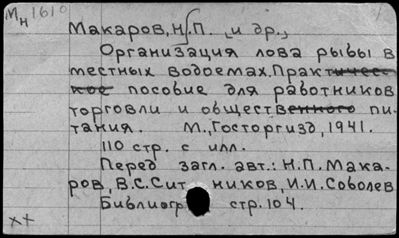 Мн 1610
Макаров, Н.П. и др.,
Организация лова рыбы в
местных водоемах. Практичес-
кое пособие для работников
торговли и общественного пи-
тания. М., Госторгизд, 1941.
110 стр. с илл.
Перед загл. авт.: Н.П. Мака-
ров, В.С. Сит ников, И.И. Соболев
Библиогр стр. 104.
xx